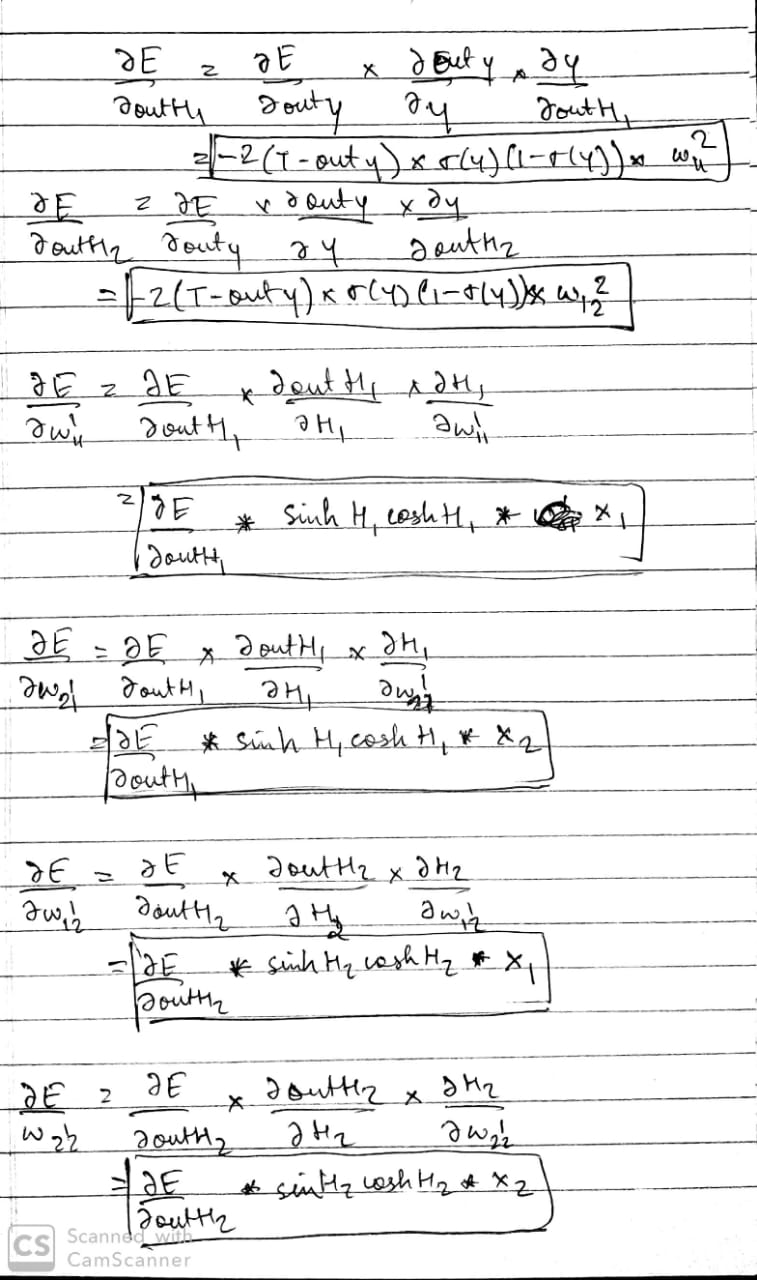 ∂E/∂outH₁ = ∂E/∂outy × ∂outy/∂y × ∂y/∂outH₁
= -2(T-outy) × σ(y)(1-σ(y)) × w₁₁²
∂E/∂outH₂ = ∂E/∂outy × ∂outy/∂y × ∂y/∂outH₂
= -2(T-outy) × σ(y)(1-σ(y)) × w₁₂²
∂E/∂w₁₁¹ = ∂E/∂outH₁ × ∂outH₁/∂H₁ × ∂H₁/∂w₁₁¹
= ∂E/∂outH₁ * sinh H₁ cosh H₁ * x₁
∂E/∂w₂₁¹ = ∂E/∂outH₁ × ∂outH₁/∂H₁ × ∂H₁/∂w₂₁¹
= ∂E/∂outH₁ * sinh H₁ cosh H₁ * x₂
∂E/∂w₁₂¹ = ∂E/∂outH₂ × ∂outH₂/∂H₂ × ∂H₂/∂w₁₂¹
= ∂E/∂outH₂ * sinh H₂ cosh H₂ * x₁
∂E/w₂₂¹ = ∂E/∂outH₂ × ∂outH₂/∂H₂ × ∂H₂/∂w₂₂¹
= ∂E/∂outH₂ * sinH₂ coshH₂ * x₂
CS Scanned with
CamScanner